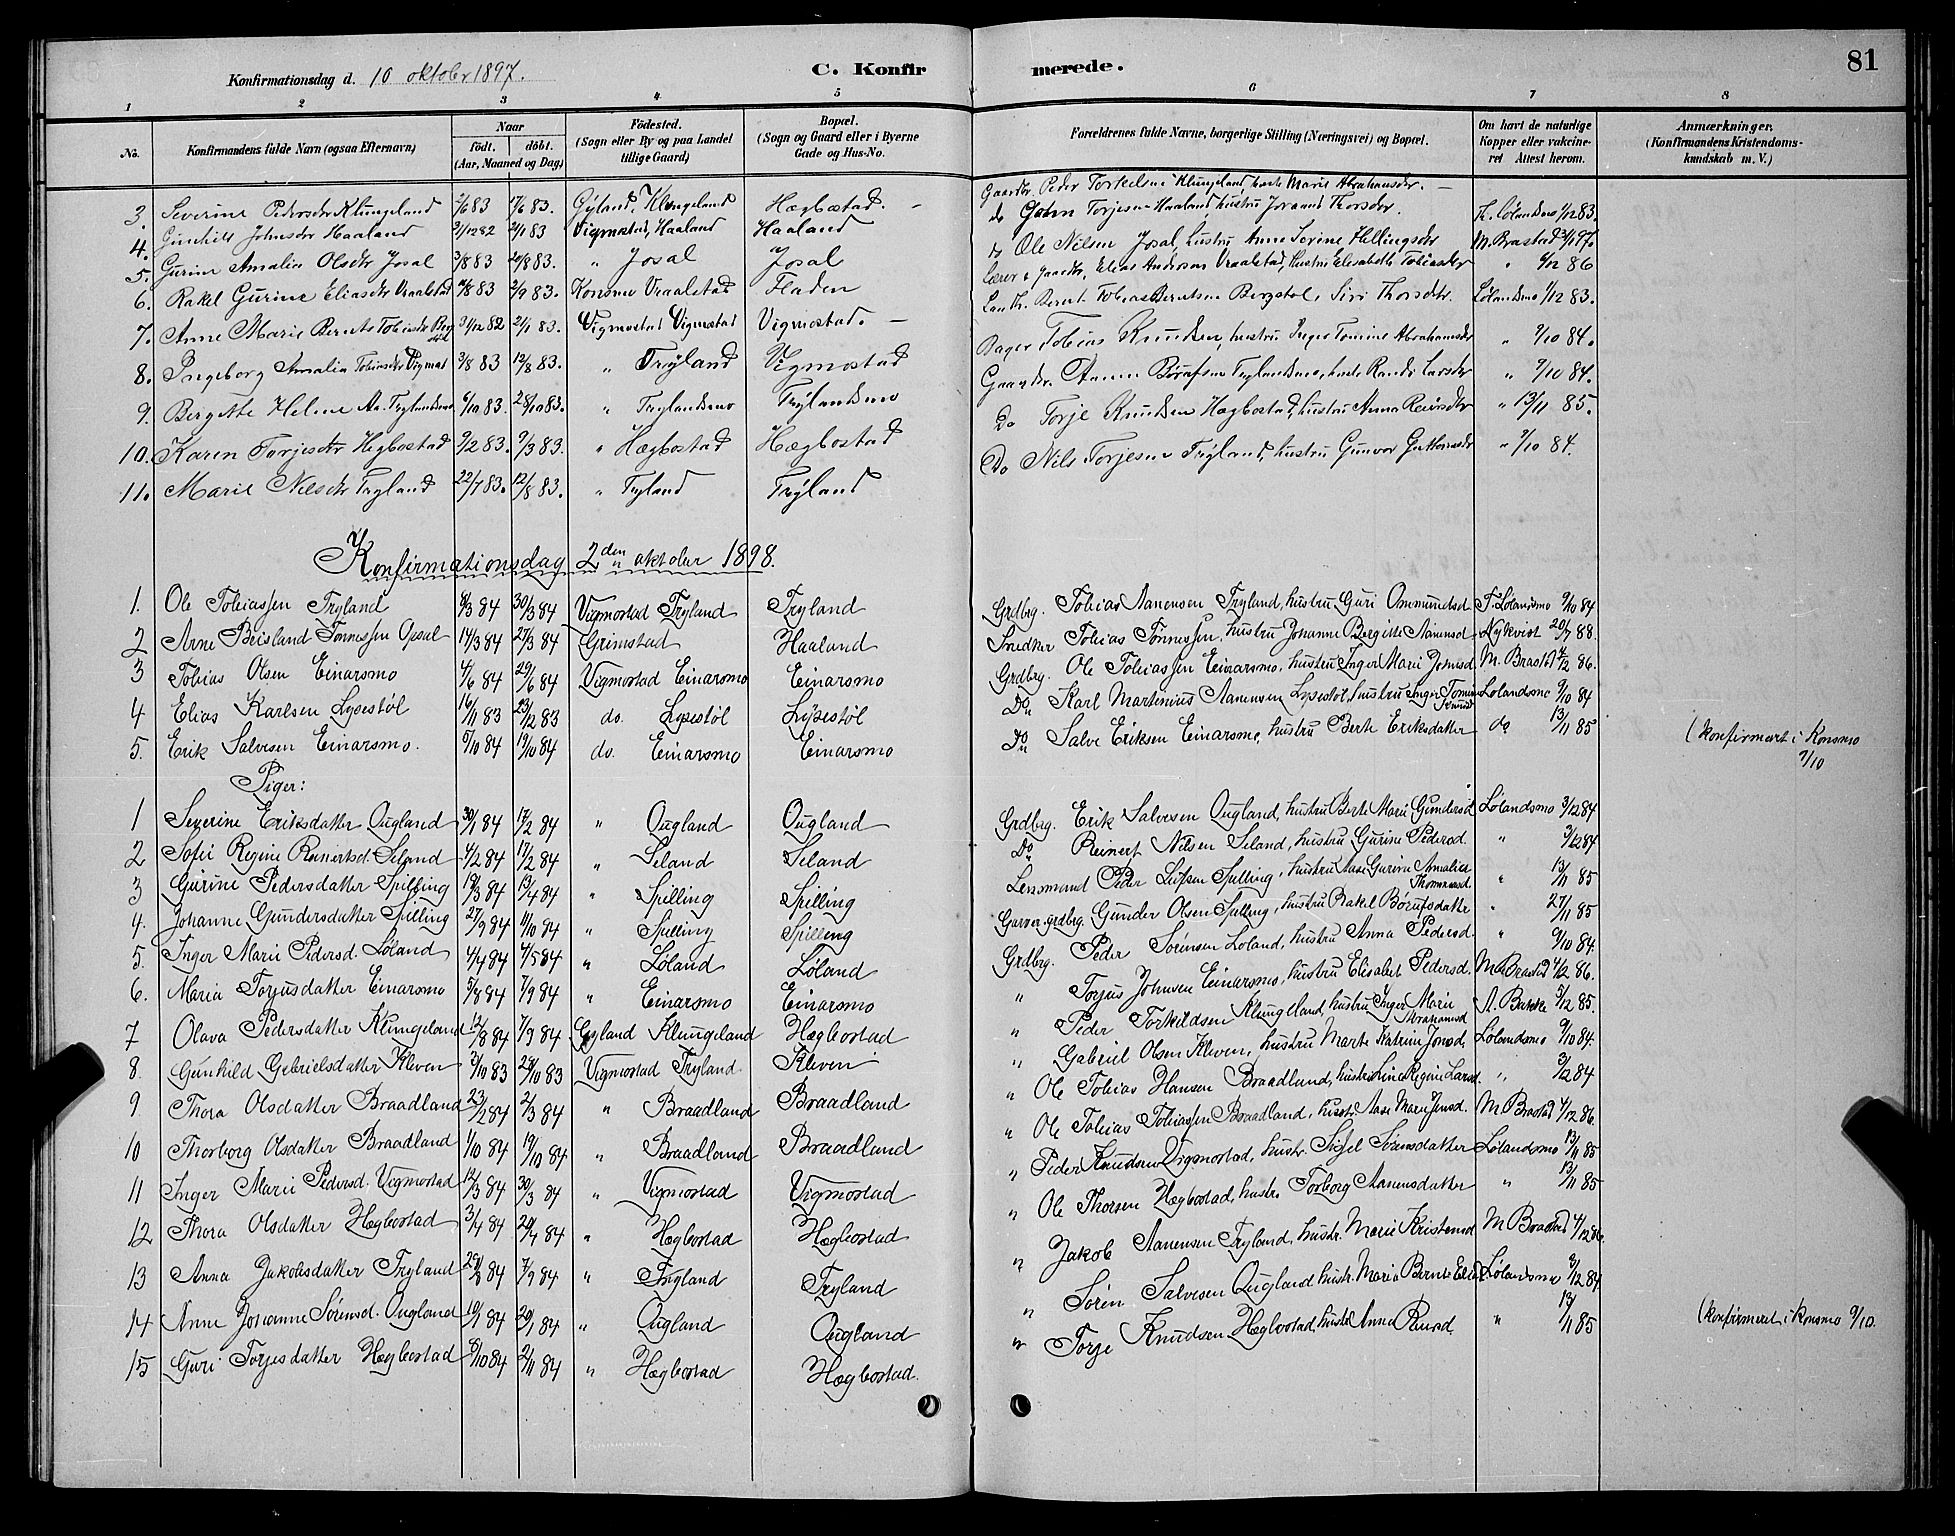 Konfirmationsdag d. 10 oktober 1897.
C. Konfirmerede.
81
1 2 3 4 5 6 7 8
No.
Konfirmandens fulde Navn (ogsaa Efternavn)
Naar
født. døbt.
(Aar, Maaned og Dag)
Fødested.
(Sogn eller By og paa Landet
tillige Gaard)
Bopæl.
(Sogn og Gaard eller i Byerne
Gade og Hus-No.
Forældrenes fulde Navne, borgerlige Stilling (Næringsvei) og Bopæl.
Om havt de naturlige
Kopper eller vakcineret
Attest herom.
Anmærkninger.
(Konfirmandens Kristendomskundskab
m. V.)
3. Severine Pedersdtr Klungeland 2/6 83 17/6 83. Gyland, Klungeland Hægbostad. Gaardbr. Peder Torkelsen Klungeland, hustr Marie Abrahamsdr.
4. Gunhild Johnsdr Haaland 21/12 82 2/1 83 Vigmostad, Haaland Haaland do John Torjesen Haaland, hustru Joraand Thorsdr. Th. Lølandsmo 1/12 83.
5. Gurine Amalia Olsdtr Josal 3/8 83 20/8 83. " Josal Josal do Ole Nilsen Josal, hustru Anne Serine Hellingsdr M. Brastad 3/1 97.
6. Rakel Gurine Eliasdtr Vraalstad 4/8 83 2/9 83. Konsmo Vraalstad Fladen Lærer & gaardbr, Elias Andersen Vraalstad, hustru Elisabeth Tobiasdtr " 4/12 86
7. Anne Marie Bernts Tobiasdtr 31/12 82 21/1 83. Vigmostad Vigmostad Vigmostad. Bernt Tobias Berntsen Bergstøl, Siri Thorsdtr. Lølandsmo 1/12 83.
8. Ingeborg Amalia Tobiasdtr Vigmost 3/8 83 12/8 83. " Tryland Vigmostad Bager Tobias Knudsen, hustru Inger Tomine Abrahamsdr " 9/10 84.
9. Bergitte Helene Aa. Trylandsmo 6/10 83. 28/10 83. " Trylandsmo Trylandsmo Gaardbr. Aanen Børufsen Trylandsmo, hustr Randi Larsdtr " 9/10 84.
10. Karen Torjesdtr Hegbostad 9/2 83. 9/3 83. " Hægbostad Hægbostad Do Torje Knudsen Hægbostad, hustru Anna Reiersdtr " 13/11 85.
11. Marie Nilsdtr Tryland 22/7 83. 12/8 83. " Tryland Tryland Do Nils Torjesen Tryland, hustru Gunvor Guttormsdr " 9/10 84.
Konfirmationsdag 2den oktober 1898.
1. Ole Tobiassen Tryland 8/3 84 30/3 84 Vigmostad Tryland Tryland Grdbrg. Tobias Aanensen Tryland, hustru Guri Ommundsd T. Lølandsmo 9/10 84
2 Arne Brisland Tønnessen Opsal 14/3 84 27/3 84 Grimstad Haaland Snedker Tobias Tønnessen, hustru Johanne Bergitte Aanensd Nykvist 20/7 88.
3 Tobias Olsen Einarsmo 4/6 84 29/6 84 Vigmostad Einarsmo Einarsmo Grdbrg. Ole Tobiassen Einarsmo, hustru Inger Marie Jensd. M. Brastad 4/12 86.
4 Elias Karlsen Lysestøl 16/11 83 23/12 83 do. Lysestøl Lysestøl Do Karl Martenius Aanensen Lysestøl, hustru Inger Tomine Knudsd Lølandsmo 9/10 84
5. Erik Salvesen Einarsmo. 5/10 84 19/10 84 do. Einarsmo Einarsmo Do Salve Eriksen Einarsmo, hustru Berte Eriksdatter do 13/11 85 (konfirmert i Konsmo 9/10
Piger:
1 Severine Eriksdatter Ougland 30/1 84 17/2 84 " Ougland Ougland Grdbrg. Erik Salvesen Ougland, hustru Berte Marie Gundersd Lølandsmo 3/12 84
2 Sofie Regine Reinertsd. Seland 4/2 84 17/2 84 " Seland Seland Do Reinert Nilsen Seland, hustru Gurine Pedersd. " 3/12 84
3 Gurine Pedersdatter Spilling 19/3 84 13/4 84 " Spilling Spilling Lensmand Peder Leifsen Spilling, hustru Aase Gurine Amalie Thommesd. " 13/11 85
4. Johanne Gundersdatter Spilling 27/9 84 11/10 84 " Spilling Spilling Garver grdbrg. Gunder Olsen Spilling, hustru Rakel Børufsdatter " 27/11 85
5. Inger Marie Pedersd. Løland 4/4 84 4/5 84 " Løland Løland Grdbrg. Peder Sørensen Løland, hustru Anna Pedersd. " 9/10 84.
6. Maria Torjusdatter Einarsmo 5/8 84 7/9 84 " Einarsmo Einarsmo " Torjus Johnsen Einarsmo, hustru Elisabet Pedersd. M. Brastad 4/12 86.
7 Olava Pedersdatter Klungeland 12/8 84 7/9 84 Gyland Klungeland Hægbostad " Peder Torkildsen Klungeland, hustru Inger Marie Abrahamsd A. Bakke 5/12 85.
8. Gunhild Gabrielsdatter Kleven 3/10 83 28/10 83 Vigmostad Tryland Kleven " Gabriel Olsen Kleven, hustru Marte Katrine Jonsd. Lølandsmo 9/10 84.
9 Thora Olsdatter Braadland 23/2 84 2/3 84 " Braadland Braadland " Ole Tobias Hansen Braadland, hustru Line Regine Larsd. " 3/12 84
10 Thorborg Olsdatter Braadland 1/10 84 19/10 84 " Braadland Braadland " Ole Tobias Tobiassen Braadland, hustr. Aase Marie Jensd. M. Brastad 4/12 86.
11 Inger Marie Pedersd. Vigmostad 12/3 84 30/3 84 " Vigmostad Vigmostad " Peder Knudsen Vigmostad, hustr. Sissel Sørensdatter Lølandsmo 13/11 85
12 Thora Olsdatter Hægbostad 3/4 84 20/4 84 " Hægbostad Hægbostad " Ole Thorsen Hægbostad, hustr. Torborg Aanensdatter " 13/11 85
13 Anna Jakobsdatter Tryland 29/8 84 7/9 84 " Tryland Tryland " Jakob Aanensen Tryland, hustr. Marie Kristensd M Brastad 4/12 86.
14 Anne Johanne Sørensd. Ougland 10/1 84 20/1 84 " Ougland Ougland " Sørén Salvesen Ougland hustr. Maria Bernte Eliasd. Lølandsmo 3/12 84.
15 Guri Torjesdatter Hægbostad 8/10 84 2/11 84 " Hægbostad Hægbostad. " Torje Knudsen Hægbostad, hustr Anna Reiersd. " 13/11 85 (konfirmert i Konsmo 9/10.